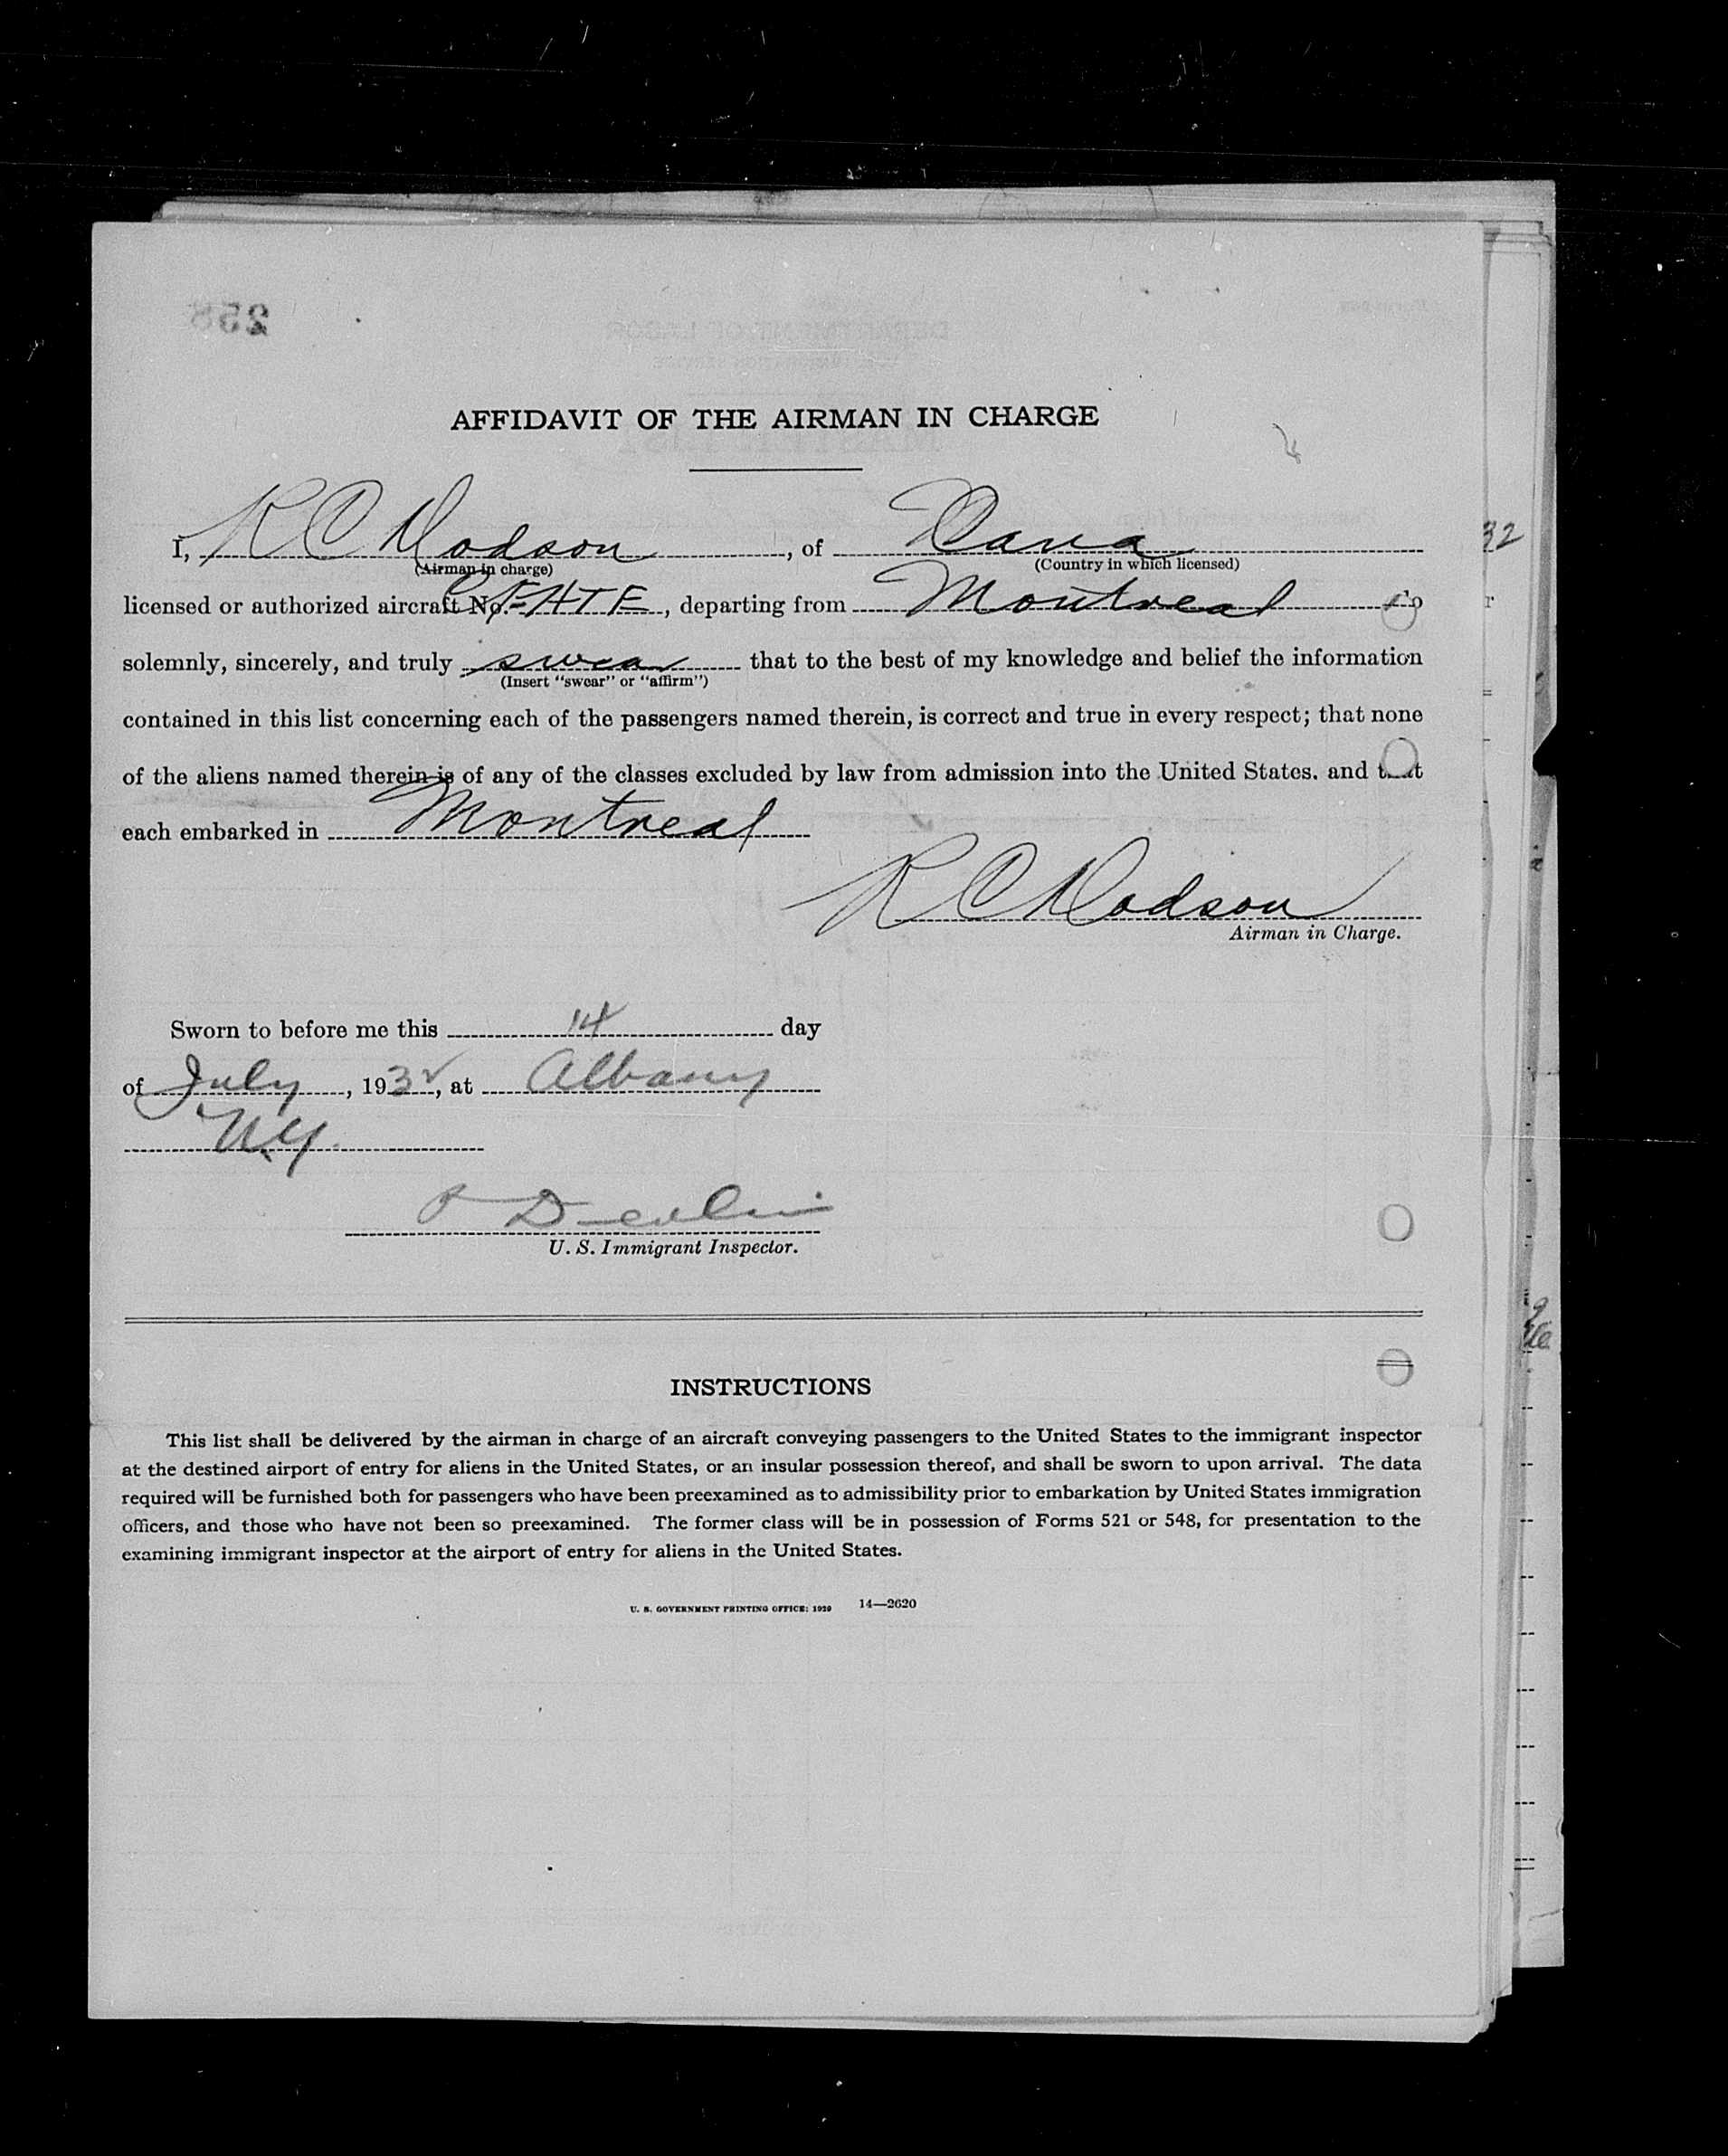 AFFIDAVIT OF THE AIRMAN IN CHARGE
I, R C Dodson, of Cana
(Airman in charge) (Country in which licensed)
licensed or authorized aircraft No. CFHTE, departing from Montreal do
solemnly, sincerely, and truly swear that to the best of my knowledge and belief the information
(Insert "swear" or "affirm")
contained in this list concerning each of the passengers named therein, is correct and true in every respect; that none
of the aliens named therein is of any of the classes excluded by law from admission into the United States. and that
each embarked in Montreal
R C Dodson
Airman in Charge.
Sworn to before me this 14 day
of July, 1932, at Albany
N.Y.
P Devlin
U. S. Immigrant Inspector.
INSTRUCTIONS
This list shall be delivered by the airman in charge of an aircraft conveying passengers to the United States to the immigrant inspector
at the destined airport of entry for aliens in the United States, or an insular possession thereof, and shall be sworn to upon arrival. The data
required will be furnished both for passengers who have been preexamined as to admissibility prior to embarkation by United States immigration
officers, and those who have not been so preexamined. The former class will be in possession of Forms 521 or 548, for presentation to the
examining immigrant inspector at the airport of entry for aliens in the United States.
U. S. GOVERNMENT PRINTING OFFICE: 1929 14—2620